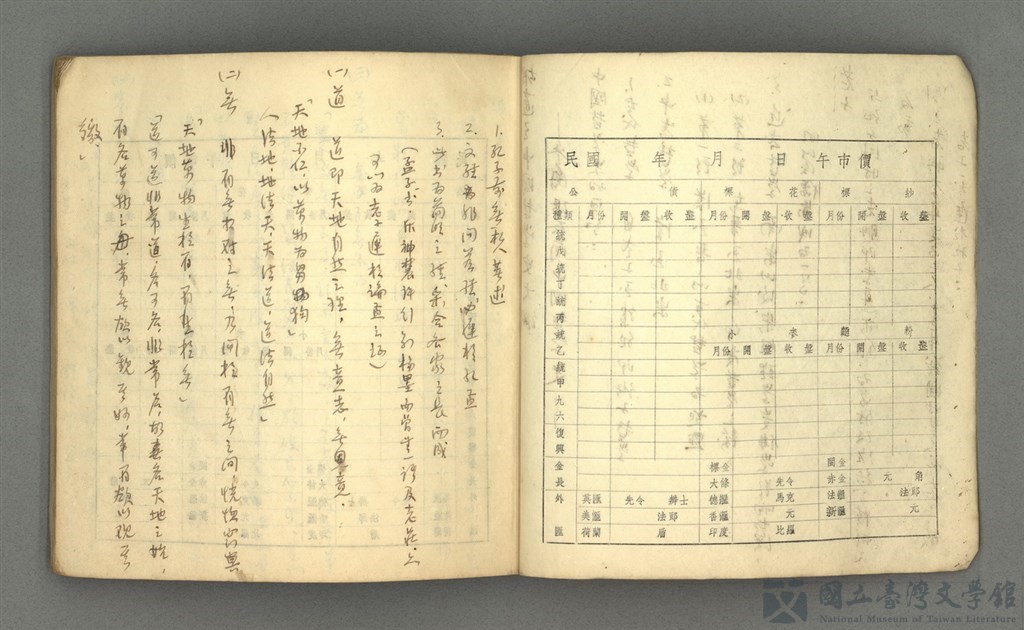 民國 年 月 日 午 市 價
公 債 標 花 標 紗
種類 月份 開盤 收盤 月份 開盤 收盤 月份 開盤 收盤
統戊
統丁
統丙
統乙
統甲
九六
復興
小 麥 麵 粉
月份 開盤 收盤 月份 開盤 收盤
金 標金 關金
長 大條 先令 赤金 元 角
外 英匯 先令 辨士 德匯 馬克 法匯 法郎
美匯 法郎 香匯 元 新匯 元
匯 荷蘭 盾 印度 比羅
1. 孔子前無私人著述
2. 文體為非問答體必進於孔孟
3. 此書為簡明之體乘合各家之長而成
(孟子書
不以為老子運於論孟之極)
(一) 道 道即天地自然之理,無意志,無思意.
「天地不仁,以萬物為芻狗」
人法地,地法天,天法道,道法自然」
(二) 無 非有無相對之無 乃間於有無之間,恍惚
「天地萬物生於有,有生於無」
「道可道非常道,名可名,非常名,故無名天地之始,
有名萬物之母,常無欲以觀其妙,常有欲以觀其
徼,」
國立臺灣文學館
National Museum of Taiwan Literature